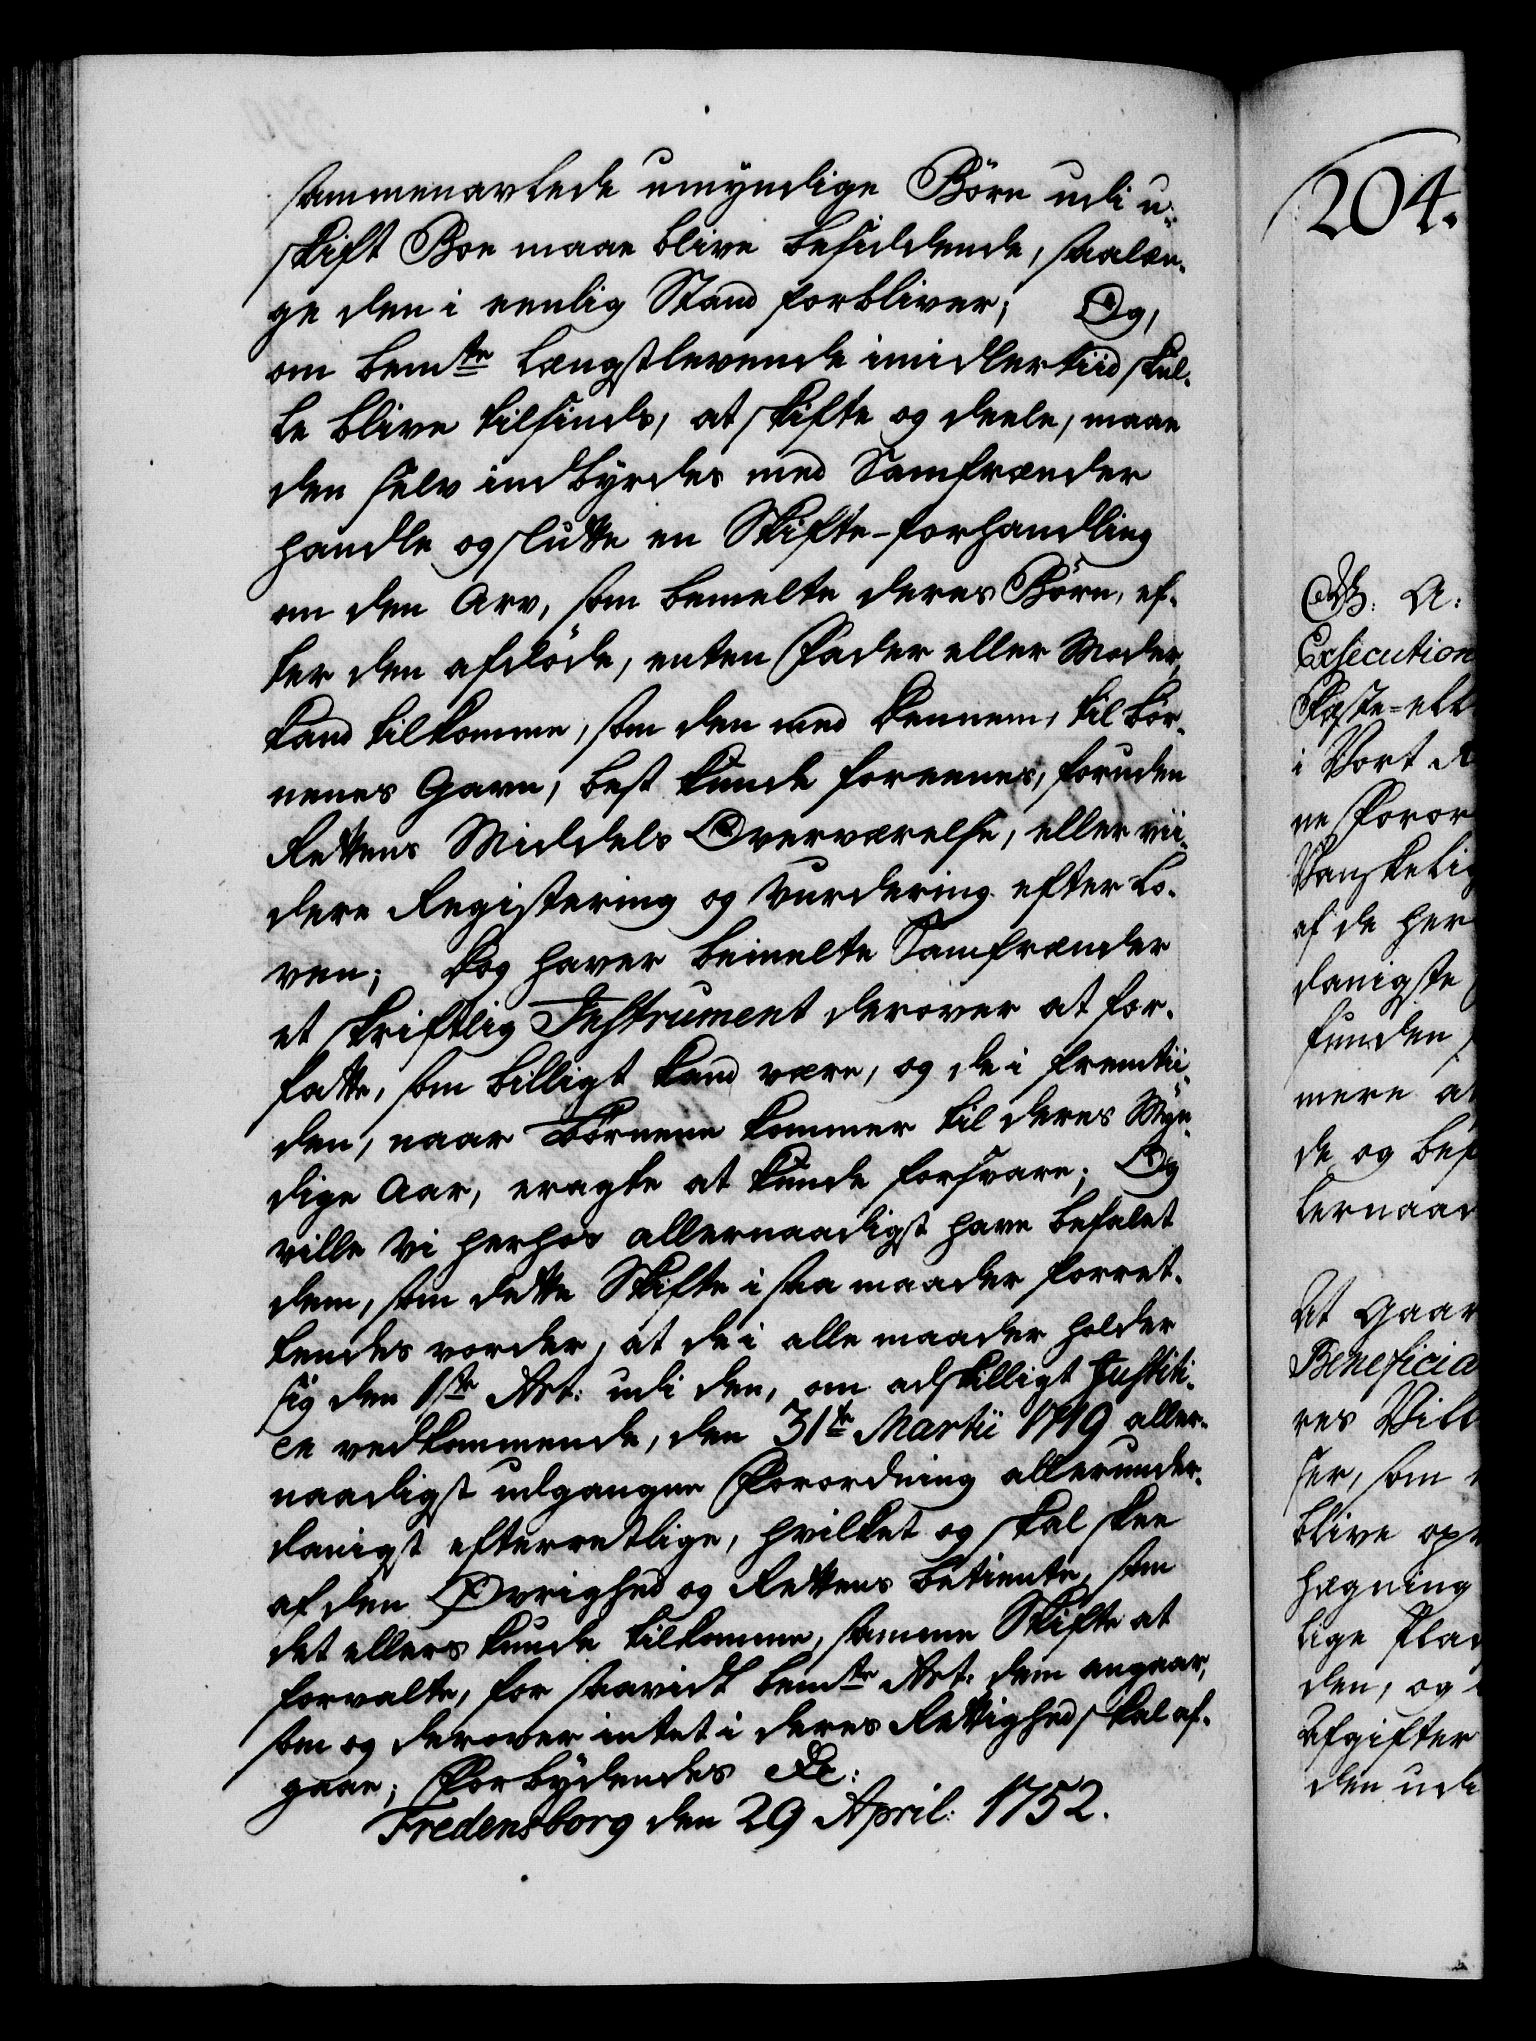 sammenavlede umyndige Börn udi u-
skift Boe maae blive besiddende, saalæn-
ge den i eenlig Stand forbliver; Og,
om bemte Længstlevende imidlertiid skul-
le blive tilsinds, at skifte og deele, maae
den selv indbyrdes med Samfrænder
handle og slutte en Skifte-forhandling
om den Arv, som bemelte deres Börn, ef-
ter den afdöde, enten Fader eller Moder,
kand tilkomme, som den med dennem, til Bör-
nenes Gavn, best kunde foreenes, foruden
Rettens Middels Overværelse, eller vii-
dere Registering og Vurdering efter Lo-
ven; Dog haver bemelte Samfrænder
et skriftlig Instrument derover at for-
fatte, som billigt kand være, og de i fremtii-
den, naar Börnene kommer til deres Myn-
dige Aar, eragte at kunde forsvare; Og
ville Vi herhos allernaadigst have befalet
dem, som dette Skifte i saa maader forret-
tendes vorder, at de i alle maader holder
sig den 1ste Art: udi den, om adskilligt Justiti-
en vedkommende, den 31te Martii 1719 aller-
naadigst udgangne Forordning allerunder-
danigst efterretlige, hvilket og skal skee
af den Øvrighed og Rettens Betiente, som
det ellers kunde tilkomme, samme Skifte at
forvalte, for saavidt bemte Art: dem angaar,
som og derover intet i deres Rettighed skal af-
gaae; Forbydendes &c:
Fredensborg den 29 April: 1752.
204.
A:
Execution
Fæste-ell
i Vort R
ne Foror
Vanskelig
af de her
danigste
funden
mere a
de og bef
lernaad
At Gaar
Beneficia
res Vill
ser, som
blive op
hægning
lige Plad
den, og
Afgifter
den ude